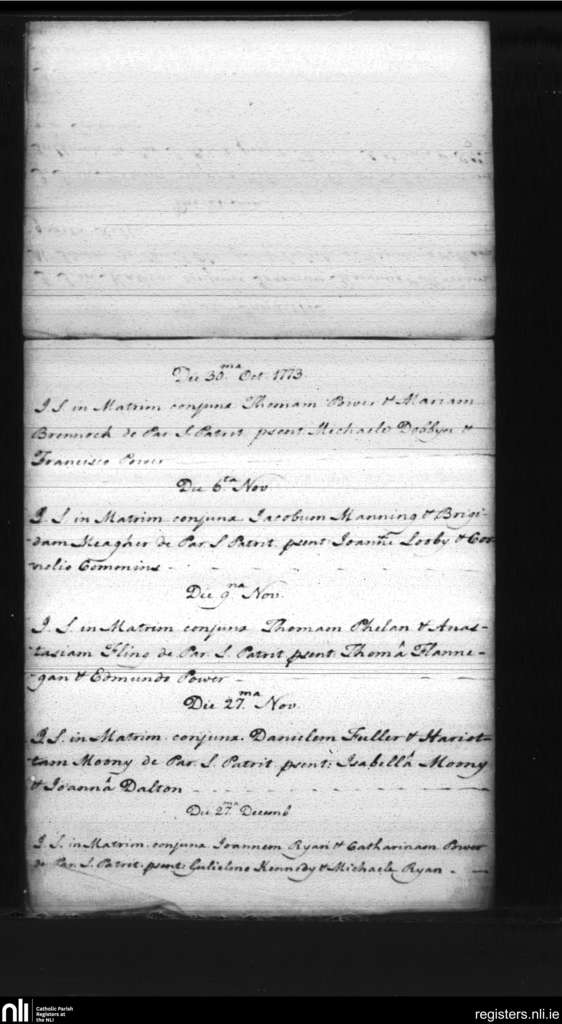 Die 30.ma Oct. 1773
I. S. in Matrim conjunx Thomam Power & Mariam
Brennock de Par S. Patrit psent Michaele Dobbyn &
Francisco Power
Die 6ta Nov
I. S. in Matrim. conjunx. Jacobum Manning & Brigi-
-dam Meagher de Par S. Patrit. psent Joanne Looby & Cor
nelio Commins -
Die 9na Nov.
I. S. in Matrim conjunx Thomam Phelan & Anas-
-tasiam Fling de Par. S. Patrit psent Thomâ Flanne-
-gan & Edmundo Power -
Die 27.ma Nov.
I. S. in Matrim. conjunx. Danielem Fuller & Hariot-
tam Moony de Par. S. Patrit. psent: Isabellâ Moony
& Joannâ Dalton
Die 27.ma Decemb
I. S. in Matrim. conjunx Joannem Ryan & Catharinam Power
de Par. S. Patrit. psent: Gulielmo Kennedy & Michaele Ryan -
nli
Catholic Parish
Registers at
the NLI
registers.nli.ie